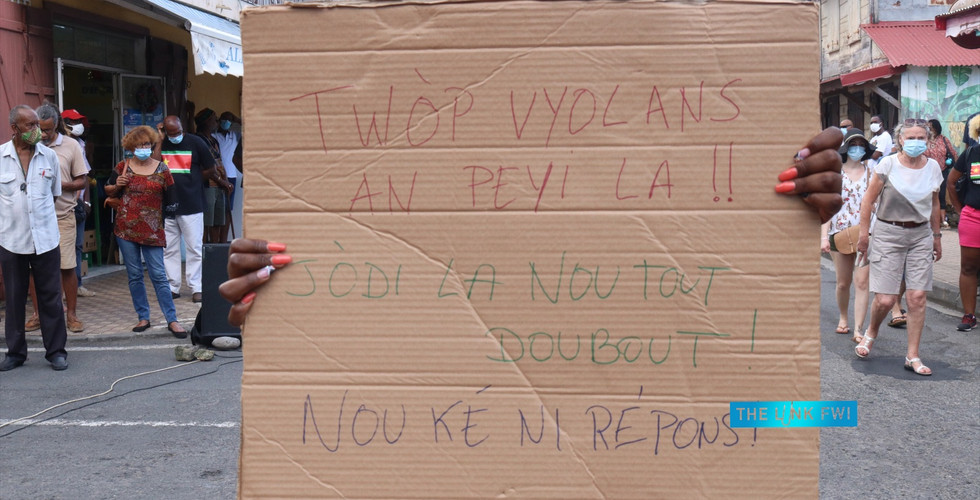 TWÒP VYOLANS
AN PEYI LA !!
JÒDI LA NOU TOUT
DOUBOUT !
NOU KÉ NI RÉPONS!
THE L!NK FWI